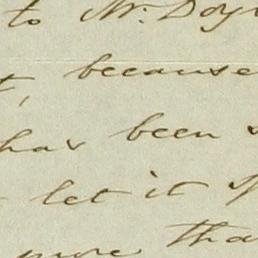 to Mr. Doy
t, because
has been s
let it
more tha